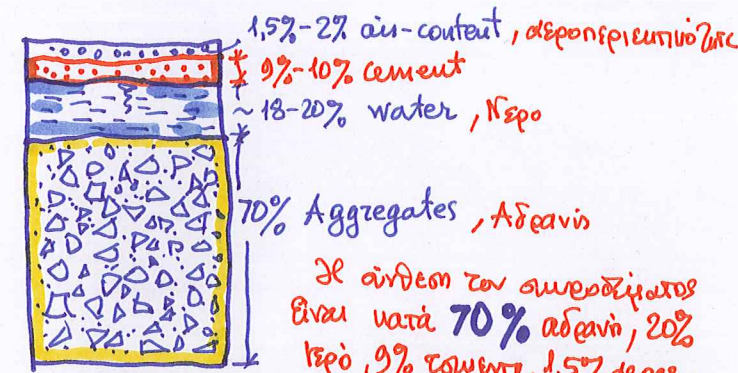 1,5%-2% air-content, αεροπεριεκτικότητα
9%-10% cement
~18-20% water, Νερο
70% Aggregates, Αδρανή
Η σύνθεση του σκυροδέματος
είναι κατά 70% αδρανή, 20%
νερό, 9% τσιμέντο, 1.5%